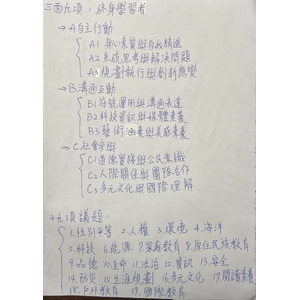 三面九項：終身學習者
→A自主行動
A1 身心素質與自我精進
A2 系統思考與解決問題
A3 規劃執行與創新應變
→B溝通互動
B1 符號運用與溝通表達
B2 科技資訊與媒體素養
B3 藝術涵養與美感素養
→C社會參與
C1 道德實踐與公民意識
C2 人際關係與團隊合作
C3 多元文化與國際理解
十九項議題：
1.性別平等 2.人權 3.環境 4.海洋
5.科技 6.能源 7.家庭教育 8.原住民族教育
9.品德 10.生命 11.法治 12.資訊 13.安全
14.防災 15.生涯規劃 16.多元文化 17.閱讀素養
18.戶外教育 19.國際教育